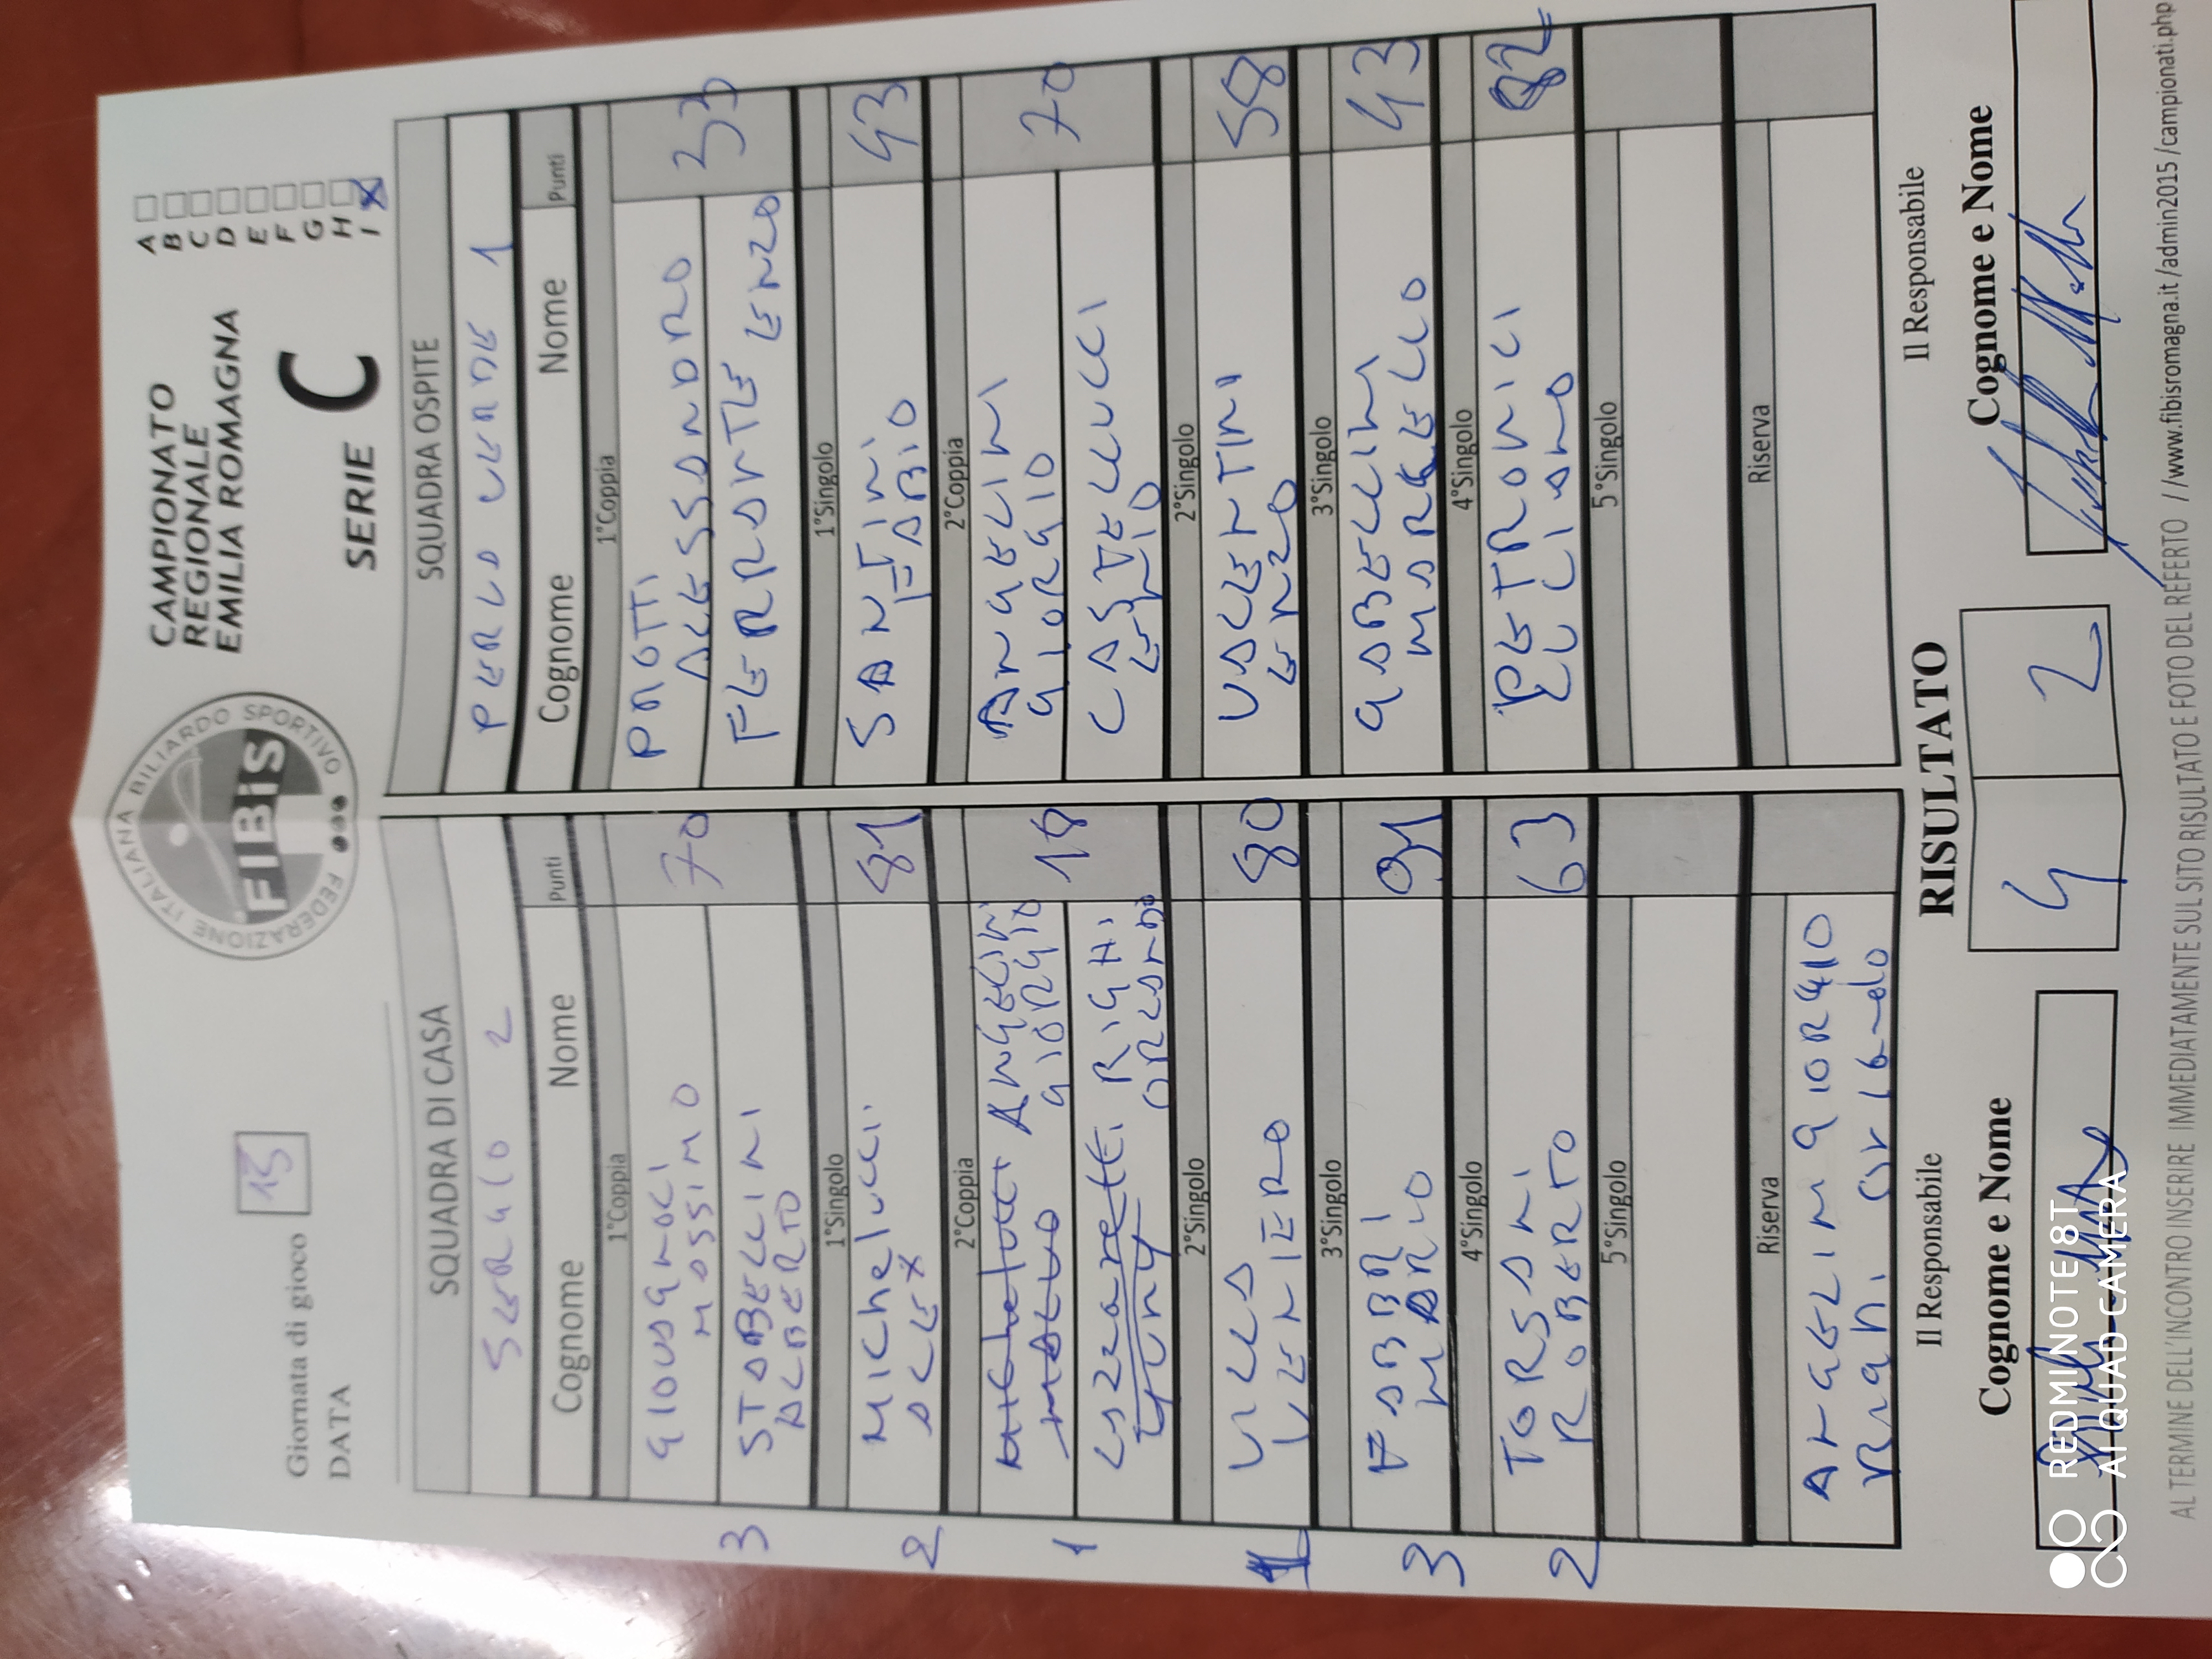 FEDERAZIONE ITALIANA BILIARDO SPORTIVO
FIBiS
CAMPIONATO
REGIONALE
EMILIA ROMAGNA
SERIE C
A
B
C
D
E
F
G
H
I X
Giornata di gioco 13
DATA
SQUADRA DI CASA
SERGIO 2
Cognome Nome Punti
1°Coppia
GIOVAGNOLI
MASSIMO
70
STABELLINI
ALBERTO
3
1°Singolo
MICHELUCCI
ALEX
81
2
2°Coppia
ANGELINI
GIORGIO
18
RIGHI
ORLANDO
1
2°Singolo
VILLA
VENIERO
80
1
3°Singolo
FABBRI
MARIO
91
3
4°Singolo
TORSANI
ROBERTO
63
2
5°Singolo
Riserva
ANGELINI GIORGIO
Righi Orlando
SQUADRA OSPITE
PERLA VERDE 1
Cognome Nome Punti
1°Coppia
PAOTTI
ALESSANDRO
33
FERRANTE ENZO
1°Singolo
SANTINI
FABIO
43
2°Coppia
ANGELINI
GIORGIO
70
CASTELLUCCI
2°Singolo
VALENTINI
ENZO
58
3°Singolo
GABELLINI
MARCELLO
43
4°Singolo
PETRONICI
LUCIANO
82
5°Singolo
Riserva
Il Responsabile
Cognome e Nome
RISULTATO
4 2
Il Responsabile
Cognome e Nome
AL TERMINE DELL'INCONTRO INSERIRE IMMEDIATAMENTE SUL SITO RISULTATO E FOTO DEL REFERTO //www.fibisromagna.it /admin2015 /campionati.php
REDMI NOTE 8T
AI QUAD CAMERA